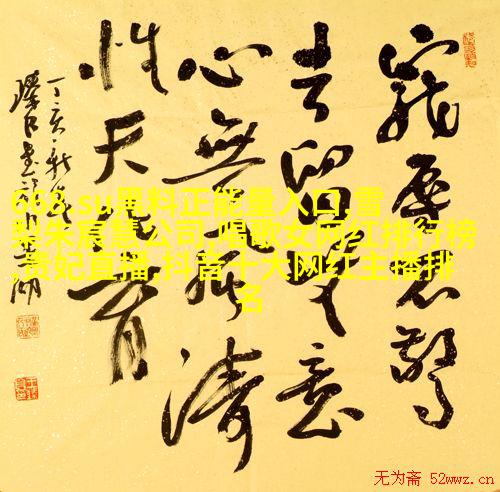 寵辱不驚
去留無意
心無風濤
性天化育
丁亥
668.su黑料正能量入口,雪
梨朱宸慧公司,唱歌女网红排行榜
,贵妃直播,抖音十大网红主播排
名
无为斋 52wwz.cn